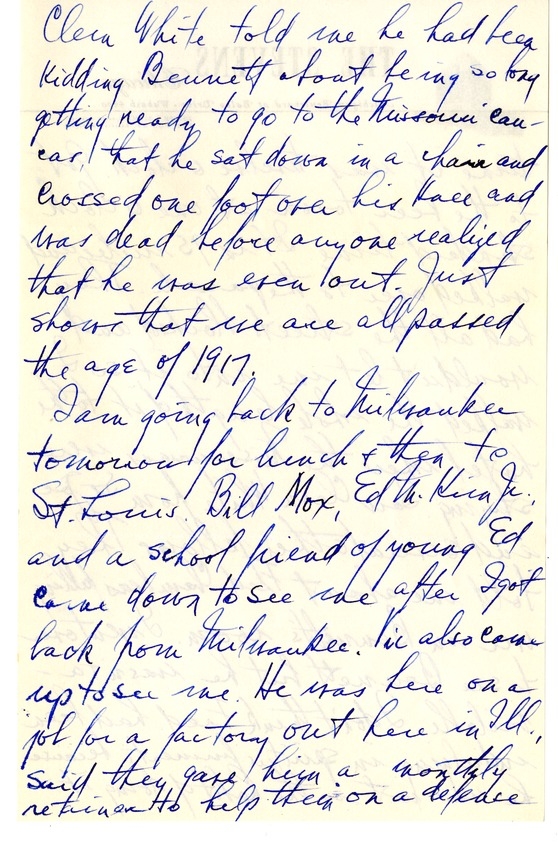 Clem White told me he had been
kidding Bennett about being so long
getting ready to go to the Missouri cau-
cas, that he sat down in a chair and
crossed one foot over his knee and
was dead before anyone realized
that he was even out. Just
shows that we are all passed
the age of 1917.
I am going back to Milwaukee
tomorrow for lunch & then to
St. Louis. Bill Mox, Ed M. Kim Jr.,
and a school friend of young Ed
came down to see me after I got
back from Milwaukee. also came
up to see me. He was here on a
job for a factory out here in Ill.,
said they gave him a monthly
retriner to help them on a defense